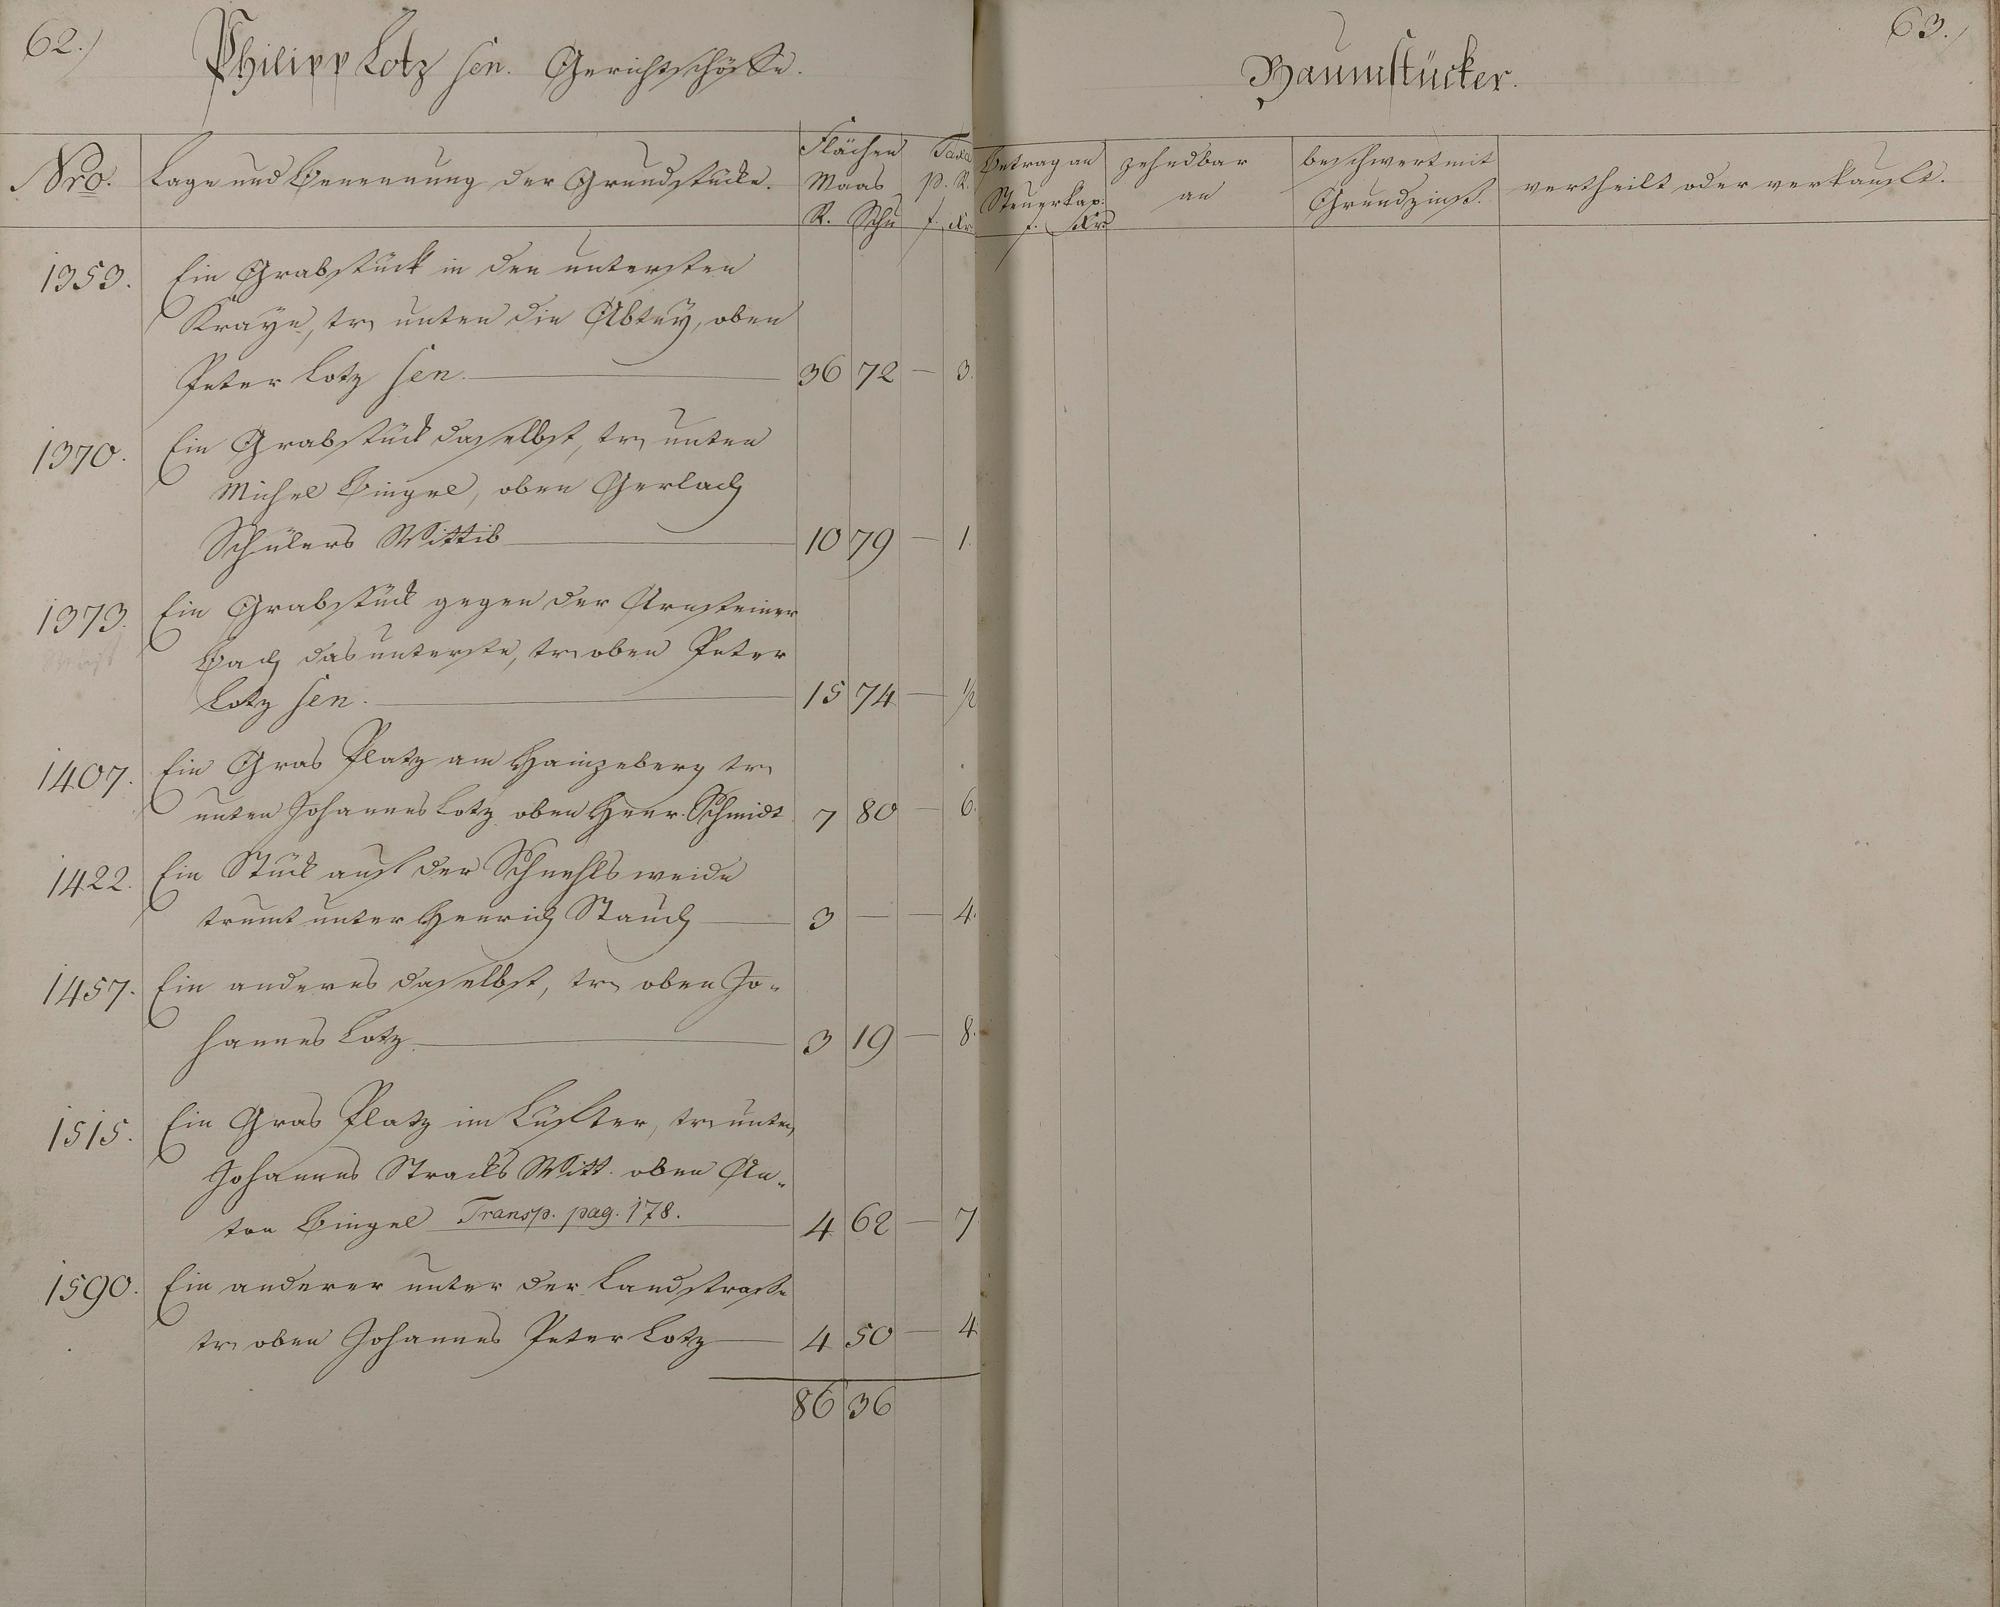 62.)
Philipp Lotz sen. Gerichtsschöffe.
Nro.
Lage und Benennung der Grundstücke.
Flächen
Maas
R. Schu
Taxa
p. R.
f. Xr
1353. Ein Grabstück in den untersten
Kraye, tr. unten die Abtey, oben
Peter Lotz sen. 36 72 — 3.
1370. Ein Grabstück daselbst, tr. unten
Michel Bingel, oben Gerlach
Schülers Wittib 10 79 — 1.
1373. Ein Grabstück gegen der Arnsteiner
Bach das unterste, tr. oben Peter
Lotz sen. 15 74 — ½
1407. Ein Gras Platz am Hainzeberg tr.
unten Johannes Lotz oben Henr. Schmidt 7 80 — 6.
1422. Ein Stück auf der weide
trumt unter Henrich Stauch 3 — — 4.
1457. Ein anderes daselbst, tr. oben Jo-
hannes Lotz 3 19 — 8.
1515. Ein Gras Platz im Lüfter, tr. unten
Johannes Stracks Witt. oben An-
ton Bingel Transp. pag. 178. 4 62 — 7
1590. Ein anderer unter der Landstrasse
tr. oben Johannes Peter Lotz 4 50 — 4
86 36
63.)
Baumstücker.
Betrag an
Steuerkap.
f. Xr
zehndbar
an
beschwert mit
Grundzinß.
vertheilt oder verkauft.